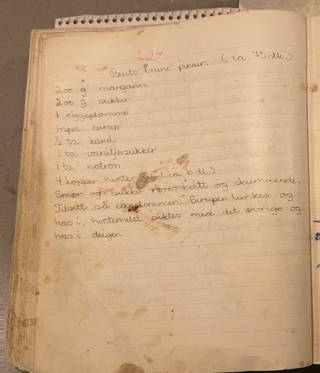 224
Brune pinner. (ca. 75 stk.)
200 g margarin
200 g sukker
1 eggeplomme
1 sirup
½ ts kanel
1 ts vaniljesukker
1 ts natron
4 kopper (ca. 6 dl.)
Smør og sukker røres hvitt og skummende.
Tilsett så eggeplommen. Sirupen lunkes og
has i, hvetemelet siktes med det øvrige og
has i deigen.